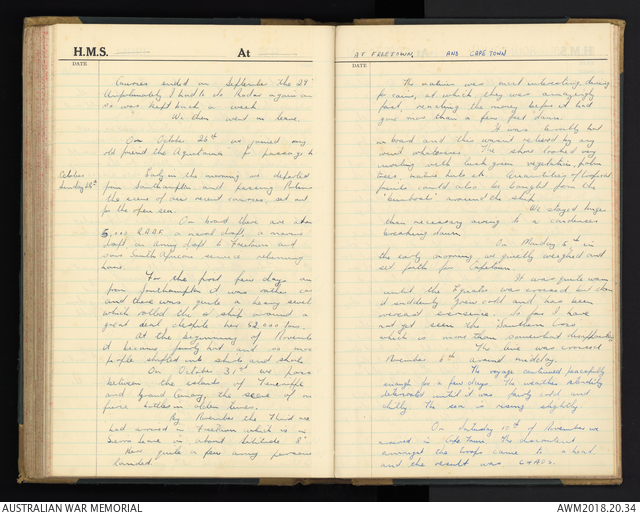 H.M.S.
At
DATE
Courses ended on September the 29
Unfortunately I had to do Radar again
so was kept back a week
We then went on leave.
On October 26th we joined my
old friend the Aquitania for passage to
October
Sunday 28th
Early in the morning we departed
from Southampton and passing
the scene of our recent courses, set out
for the open sea.
On board there are
5,000 R.A.A.F. a naval draft, a marine
draft, an army draft to Freetown and
some South African service returning
home.
For the first few days
from Southampton it was rather
and there was quite a heavy swell
which rolled the ship around a
great deal despite her 42,000 tons.
At the beginning of November
it became fairly hot and
people shifted into shorts and shirts
On October 31st we pass
between the islands of Teneriffe
and Grand Canary, the scene of
fierce battles in olden times.
By November the Third we
had arrived in Freetown which is in
Sierra Leone in about latitude 8°
Here quite a few army persons
landed.
AT FREETOWN, AND CAPETOWN
DATE
The natives were most interesting, diving
for coins, at which they were amazingly
fast, reaching the money before it had
gone more than a few feet down.
It was terribly hot
on board and this wasn't relieved by any
wind whatsoever. The shore looked very
inviting with lush green vegetation, palm
trees, native huts etc. Quantities of tropical
fruits could also be bought from the
"bumboats" around the ship.
We stayed longer
than necessary owing to a condenser
breaking down
On Monday 5th in
the early morning, we quietly weighed and
set forth for Capetown.
It was quite warm
until the Equator was crossed but then
it suddenly grew cold and has been
overcast ever since. So far I have
not yet seen the Southern Cross
which is more than somewhat disappointing
The line was crossed
November 6th around midday.
The voyage continued peacefully
enough for a few days. The weather steadily
deteriorated until it was fairly cold and
chilly. The sea is rising slightly.
On Saturday 10th of November we
arrived in Cape Town. The discontent
amongst the troops came to a head
and the result was CHAOS.
AUSTRALIAN WAR MEMORIAL
AWM2018.20.34